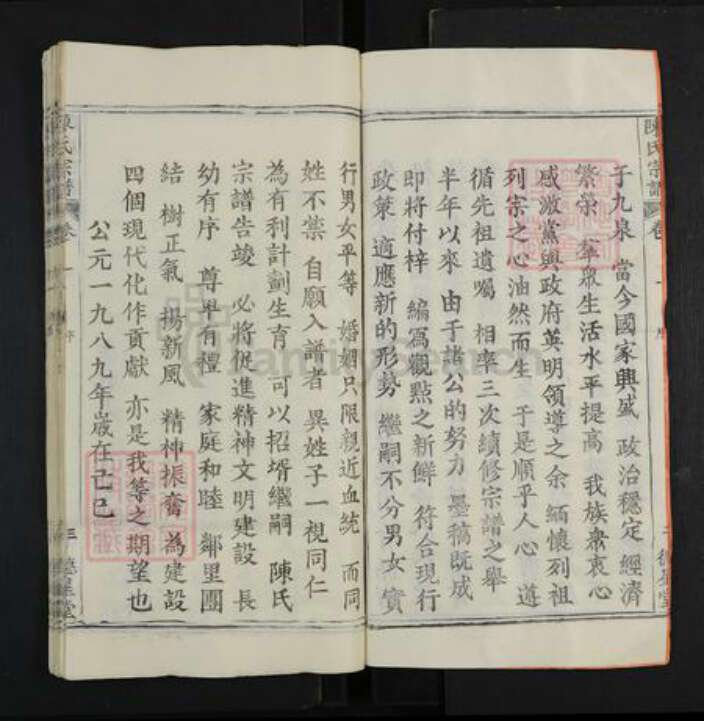 陳氏宗譜 卷一 序
于九泉 當今國家興盛 政治穩定 經濟
繁荣 羣眾生活水平提高 我族衆衷心
感激黨與政府英明領導之余 緬懷列祖
列宗之心油然而生 于是順乎人心 遵
循先祖遺嘱 相率三次續修宗譜之舉
半年以來 由于諸公的努力 墨稿既成
即將付梓 編寫觀點之新鮮 符合現行
政策 適應新的形勢 繼嗣不分男女 實
行男女平等 婚姻只限親近血統 而同
姓不禁 自願入譜者 異姓子一視同仁
為有利計劃生育 可以招壻繼嗣 陳氏
宗譜告竣 必將促進精神文明建設 長
幼有序 尊卑有禮 家庭和睦 鄰里團
結 樹正氣 揚新風 精神振奮 為建設
四個現代化作貢獻 亦是我等之期望也
公元一九八九年歲在己巳
陳氏宗譜 卷一 序
三 德星堂
FamilySearch